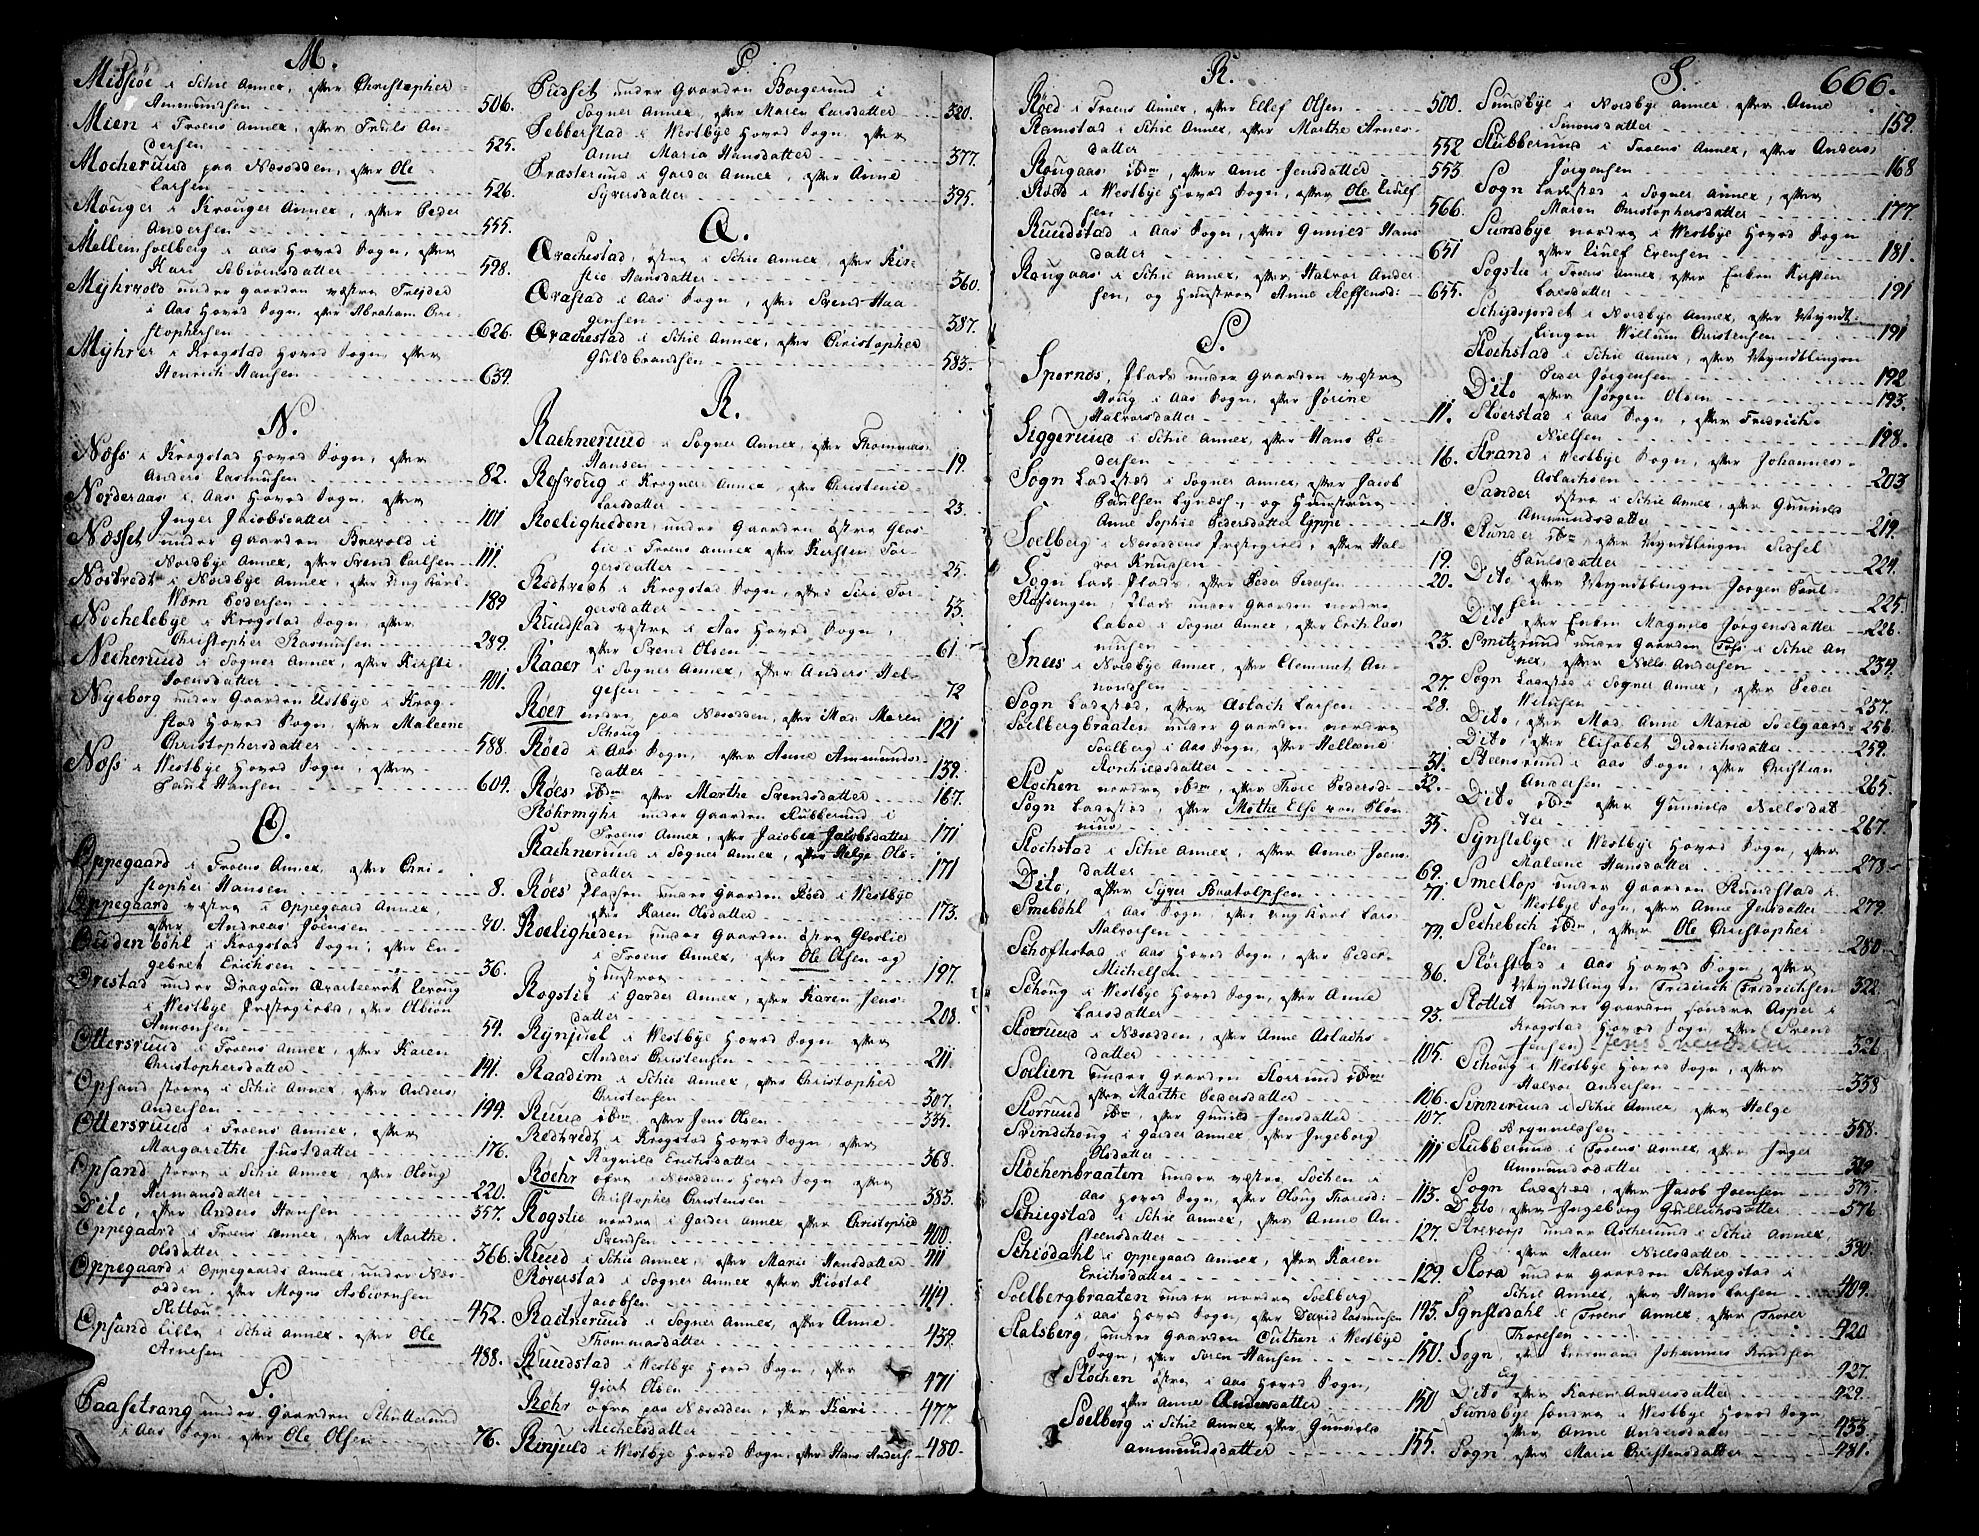 M.
Midsiöe i Schie Annex, efter Christopher
Ammundsen 506.
Mien i Froens Annex, efter Truls An-
dersen 525.
Mocheruud paa Næsodden, efter Ole
Larsen 526.
Mouger i Krouger Annex, efter Peder
Andersen 555.
Mellemsoelberg i Aas Hoved Sogn, efter
Kari Asbiörnsdatter 598.
Myhrvold under gaarden væstre
i Aas Hoved Sogn, efter Abraham Cri-
stophersen 626.
Myhrer i Krogstad Hoved Sogn, efter
Henrich Hansen 639.
N.
Næss i Krogstad Hoved Sogn, efter
Anders Rasmusen 82.
Norderaas i Aas Hoved Sogn, efter
Inger Jacobsdatter 101
Næsset under Gaarden Brevold i
Nordbye Annex, efter Svend Carlsen 111.
Nöstvedt i Nordbye Annex, efter Ung Karl
Wærn Pedersen 189
Nochelebye i Krogstad Sogn, efter
Christopher Rasmusen 289.
Necheruud i Sogner Annex, efter Kirsti
Joensdatter 401.
Nyeborg under Gaarden Ustbye i Krog-
stad Hoved Sogn, efter Maleene
Christophersdatter 588.
Næss i Westbye Hoved Sogn, efter
Paul Hansen 604.
O.
Oppegaard i Froens Annex, efter Chri-
stopher Hansen 8.
Oppegaard væstre i Oppegaard Annex,
efter Andreas Joensen 30.
Ouden böhl i Krogstad Sogn, efter En-
gebret Erichsen 36.
Drestad under Dragoun Qvarteeret
i Westbye Præstegield, efter Olbiön
Ammonsen 54.
Ottersruud i Froens Annex, efter Karen
Christophersdatter 141.
Opsand store i Schie Annex, efter Anders
Andersen 144.
Ottersruud i Froens Annex, efter
Margarethe Justdatter 176.
Opsand store i Schie Annex, efter Oloug
Hermansdatter 220.
Dito, efter Anders Hansen 557.
Oppegaard i Froens Annex, efter Marthe
Olsdatter 366.
Oppegaard i Oppegaards Annex, under Næs-
odden, efter Mogns Asbiörnsen
Flittou 452.
Opsand lille i Schie Annex, efter Ole
Arnesen 488.
P.
Paasetrang under Gaarden Schutterund
i Aas Sogn, efter Ole Olsen 76.
P.
Pudset under Gaarden Borgerund i
Sogner Annex, efter Maren Larsdatter 320.
Pebberstad i Westbye Hoved Sogn, efter
Anne Maria Hansdatter 377.
Præsterund i Garder Annex, efter Anne
Syversdatter 395.
Q.
Qvachestad, östre i Schie Annex, efter Kir-
stie Hansdatter 360.
Qvastad i Aas Sogn, efter Svend Haa
gensen 387.
Qvachestad i Schie Annex, efter Christopher
Guldbrandsen 583.
R.
Rachneruud i Sogner Annex, efter Thommas
Hansen 19.
i Krogner Annex, efter Christenie
Larsdatter 23.
Roeligheden, under Gaarden östre Glos-
lie i Froens Annex efter Kirsten Tor-
gersdatter 25.
Redtvedt i Krogstad Sogn, efter Siri Tor
gersdatter 53.
Ruudstad væstre i Aas Hoved Sogn,
efter Svend Olsen 61.
Raaer i Sogner Annex, efter Anders Hel-
gesen 72
Röer nedre, paa Næsodden, efter Mad. Maren
Schoug 121
Röed i Aas Sogn, efter Anne Ammunds-
datter 139.
Röes ibdm efter Marthe Svendsdatter 167.
Röhrmyhr under Gaarden Stubberund i
Froens Annex, efter Jacobea Jacobsdatter 171
Rachneruud i Sogner Annex, efter Helge Ols-
datter 171
Röes Pladsen under Gaarden Röed i Westbye
efter Karen Olsdatter 173.
Roeligheden under Gaarden östre Gloslie
i Froens Annex, efter Ole Olsen og
Hunstroe 197.
Rogstie i Garder Annex, efter Karen Jens-
datter 203.
Rynjuel i Westbye Hoved Sogn, efter
Anders Christensen 211.
Raadim i Schie Annex, efter Christopher
Christensen 307.
Ruud ibdm efter Jens Olsen 334.
Redtvedt i Krogstad Hoved Sogn, efter
Ragnild Erichsdatter 368.
Röehr öfre i Næsoddens Hoved Sogn efter
Christopher Christensen 383.
Rogstie nordre i Garder Annex, efter Christopher
Svendsen 400.
Ruud i Schie Annex, efter Marie Hansdatter 411
Roverstad i Sogner Annex efter Kiostol
Jacobsen 414.
Rachneruud i Sogner Annex, efter Anne
Thommasdatter 439.
Ruudstad i Westbye Hoved Sogn, efter
Giert Olsen 471
Röhr öfre paa Næsodden, efter Kari
Michelsdatter 477.
Rinjuld i Westbye Hoved Sogn, efter Hans Anders- 480.
R.
Röed i Froens Annex, efter Ellef Olsen 500.
Ramstad i Schie Annex, efter Marthe Arnes-
datter 552
Rougaas ibdm, efter Anne Jensdatter 553.
Röed i Westbye Hoved Sogn, efter Ole Ellef
sen 566.
Ruudstad i Aas Sogn, efter Gunild Hans
datter 651
Rougaas i Schie Annex, efter Halvor Ander
sen, og Hunstroe Anne Steffensd: 655.
S.
Spernes, Plads under Gaarden væstre
Houg i Aas Sogn, efter Jorine
Halvorsdatter 11.
Siggeruud i Schie Annex, efter Hans Pe
dersen 16.
Sogn Ladested i Sogner Annex, efter Jacob
Paulsen Lynæss, og Hunstrue
Anne Sophie Pedersdatter Lyppe 18.
Soelberg i Næsoddens Præstegield, efter Hal-
vor Knudsen 19.
Sogn Lade Plads, efter Peder Pedersen 20.
Slefsengen, Plads under Gaarden nordre
Laboe i Sogner Annex, efter Erich Ras
musen 23.
Snees i Nordbye Annex, efter Clemmet An-
mondsen 27.
Sogn Ladested, efter Aslach Larsen 28.
Soelbergbraaten under Gaarden nordre
Soelberg i Aas Sogn, efter Hellene
Torchiedsdatter 31.
Stochen nordre ibdm, efter Thore Pedersd- 32.
Sogn Ladested, efter Mötte Else von Flön
nius 35.
Stochstad i Schie Annex, efter Anne Joens
datter 69.
Dito, efter Syver Baatolphsen 71.
Smeböhl i Aas Sogn, efter Ung Karl Lars
Halvorsen 74.
Schoftestad i Aas Hoved Sogn, efter Peder
Michelsen 86.
Schoug i Westbye Hoved Sogn, efter Anne
Larsdatter 93.
Storruud i Næsodden, efter Anne Aslachs-
datter 105.
Soelien under Gaarden Storruud ibdm
efter Marthe Pedersdatter 106.
Storruud ibdm, efter Gunild Jensdatter 107.
Svindchoug i Garder Annex efter Ingeborg
Olsdatter 111
Stochenbraaten under væstre Stochen i
Aas Hoved Sogn, efter Oloug Thoresd: 113.
Schiegstad i Schie Annex, efter Anne An-
steensdatter 127.
Schiödahl i Oppegaard Annex, efter Karen
Erichsdatter 129.
Soelbergbraaten under nordre Soelberg
i Aas Hoved Sogn, efter David Rasmusen 145.
Stalsberg, under Gaarden Custhen i Westbye
Sogn, efter Soren Hansen 150.
Stochen östre i Aas Hoved Sogn,
efter Anne Andersdatter 150
Soelberg i Schie Annex efter Gunnild
Ammundsdatter 155.
S. 666.
Sundbye i Nordbye Annex, efter Anne
Simonsdatter 159.
Stubberund i Froens Annex, efter Anders
Jörgensen 168
Sogn Ladested i Sogner Annex, efter
Maren Christophersdatter 177.
Sundbye nordre i Westbye Hoved Sogn
efter Einef Evensen 181.
Sogstie i Froens Annex, efter Enken Kirsten
Larsdatter 191
i Nordbye Annex, efter Myndt-
lingen Willum Christensen 191
Stochstad i Schie Annex, efter Myndtlingen
Peder Jörgensen 192
Dito efter Jörgen Olsen 193.
Stoerstad i Aas Sogn, efter Fredrich
Nielsen 198.
Strand i Westbye Sogn, efter Johannes
Aslachsen 203
Sander östre i Schie Annex, efter Gunild
Ammundsdatter 219.
Sunder ibdm, efter Myndtlingen Sidsel
Paulsdatter 224.
Dito efter Myndtlingen Jörgen Paul-
sen 225.
Dito efter Enken Magnild Jorgensdatter 226.
Smitzrund under Gaarden Foss i Schie An
nex, efter Niels Andersen 234.
Sogn Ladested i Sogner Annex, efter Peder
Wilusen 257.
Dito, efter Mad. Anne Maria Soelgaard 256.
Dito, efter Elisabet Didrichsdatter 259.
Steensrund i Aas Sogn, efter Christian
Andersen 265.
Dito ibdm efter Gunnild Nielsdat
ter 267.
Synstebye i Westbye Hoved Sogn, efter
Malene Hansdatter 278.
Smellop under Gaarden Ruudstad i
Westbye Sogn, efter Anne Jensdatter 279.
Sechebech ibdm, efter Ole Christopher
sen 280.
Störstad i Aas Hoved Sogn, efter
Myndtlingen Fridrich Fredrichsen 322.
Slottet under Gaarden söndre Asper i
Krogstad Hoved Sogn, efter Svend
Jensen) Jens Svendsen 326
Schoug i Westbye Hoved Sogn, efter
Halvor Andersen 338
Sinnerund i Schie Annex, efter Helge
Brynnildsen 358.
Stubberund i Froens Annex, efter Inger
Ammundsdatter 369.
Sogn Ladested, efter Jacob Joensen 375.
Dito, efter Ingeborg Gullichsdatter 376
under Ascherund i Schie Annex,
efter Maren Nielsdatter 390
Slora under Gaarden Schiegstad i
Schie Annex, efter Hans Larsen 409.
Synstedahl i Froens Annex, efter Thorer
Thoresen 420
Sogn, efter Johannes Knudsen
427.
Dito efter Karen Andersdatter 429.
Sundbye söndre i Westbye Hoved Sogn,
efter Anne Andersdatter 453.
Sogn, efter Marie Christensdatter 481.